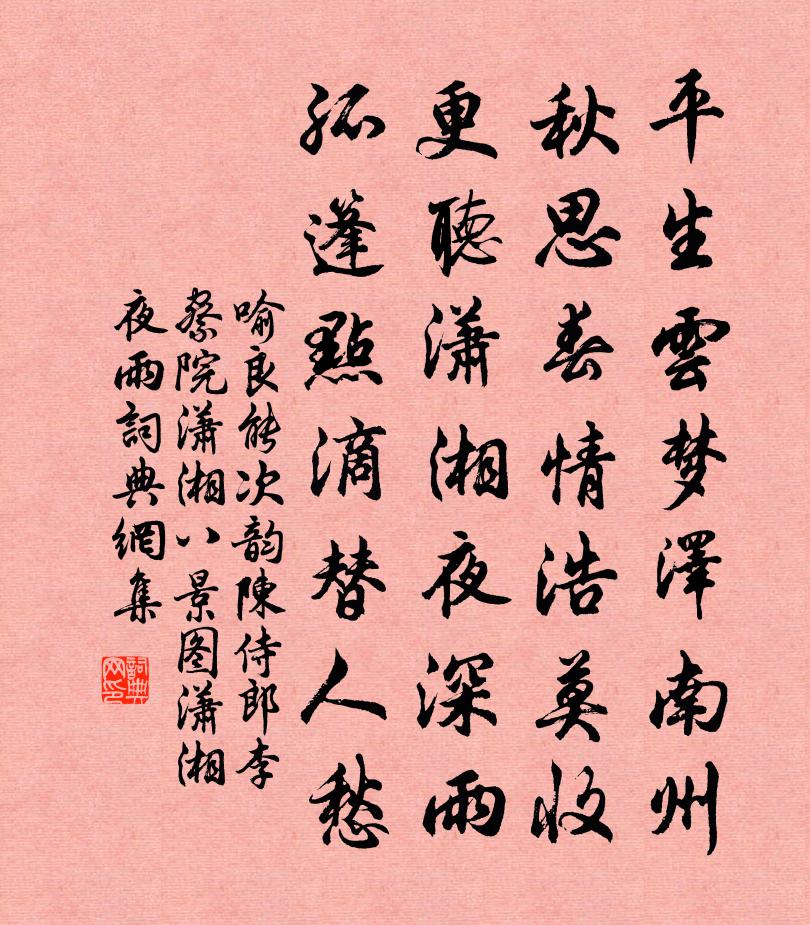 平生雲梦澤南州
秋思春情浩莫收
更聽瀟湘夜深雨
孤蓬點滴替人愁
喻良能次韵陳侍郎李
察院瀟湘八景图瀟湘
夜雨詞典網集
詞典网印